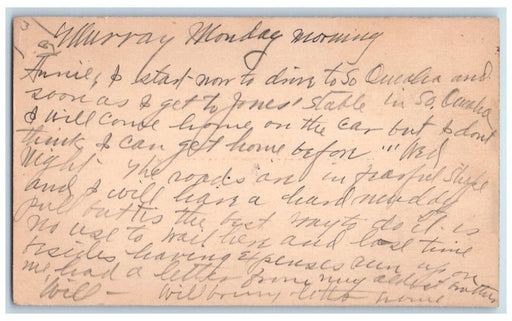 Murray Monday morning
Annie, I start now to drive to So Omaha and
soon as I get to Jones' Stable in So, Omaha
I will come home on the car but I dont
think I can get home before "Wed
Night. The roads are in fearful shape
and I will have a hard muddy
pull but tis the best way to do it is
no use to wait here and lose time
besides having expenses run up on
me had a letter from my oldest brother
Will - Will bring letter home